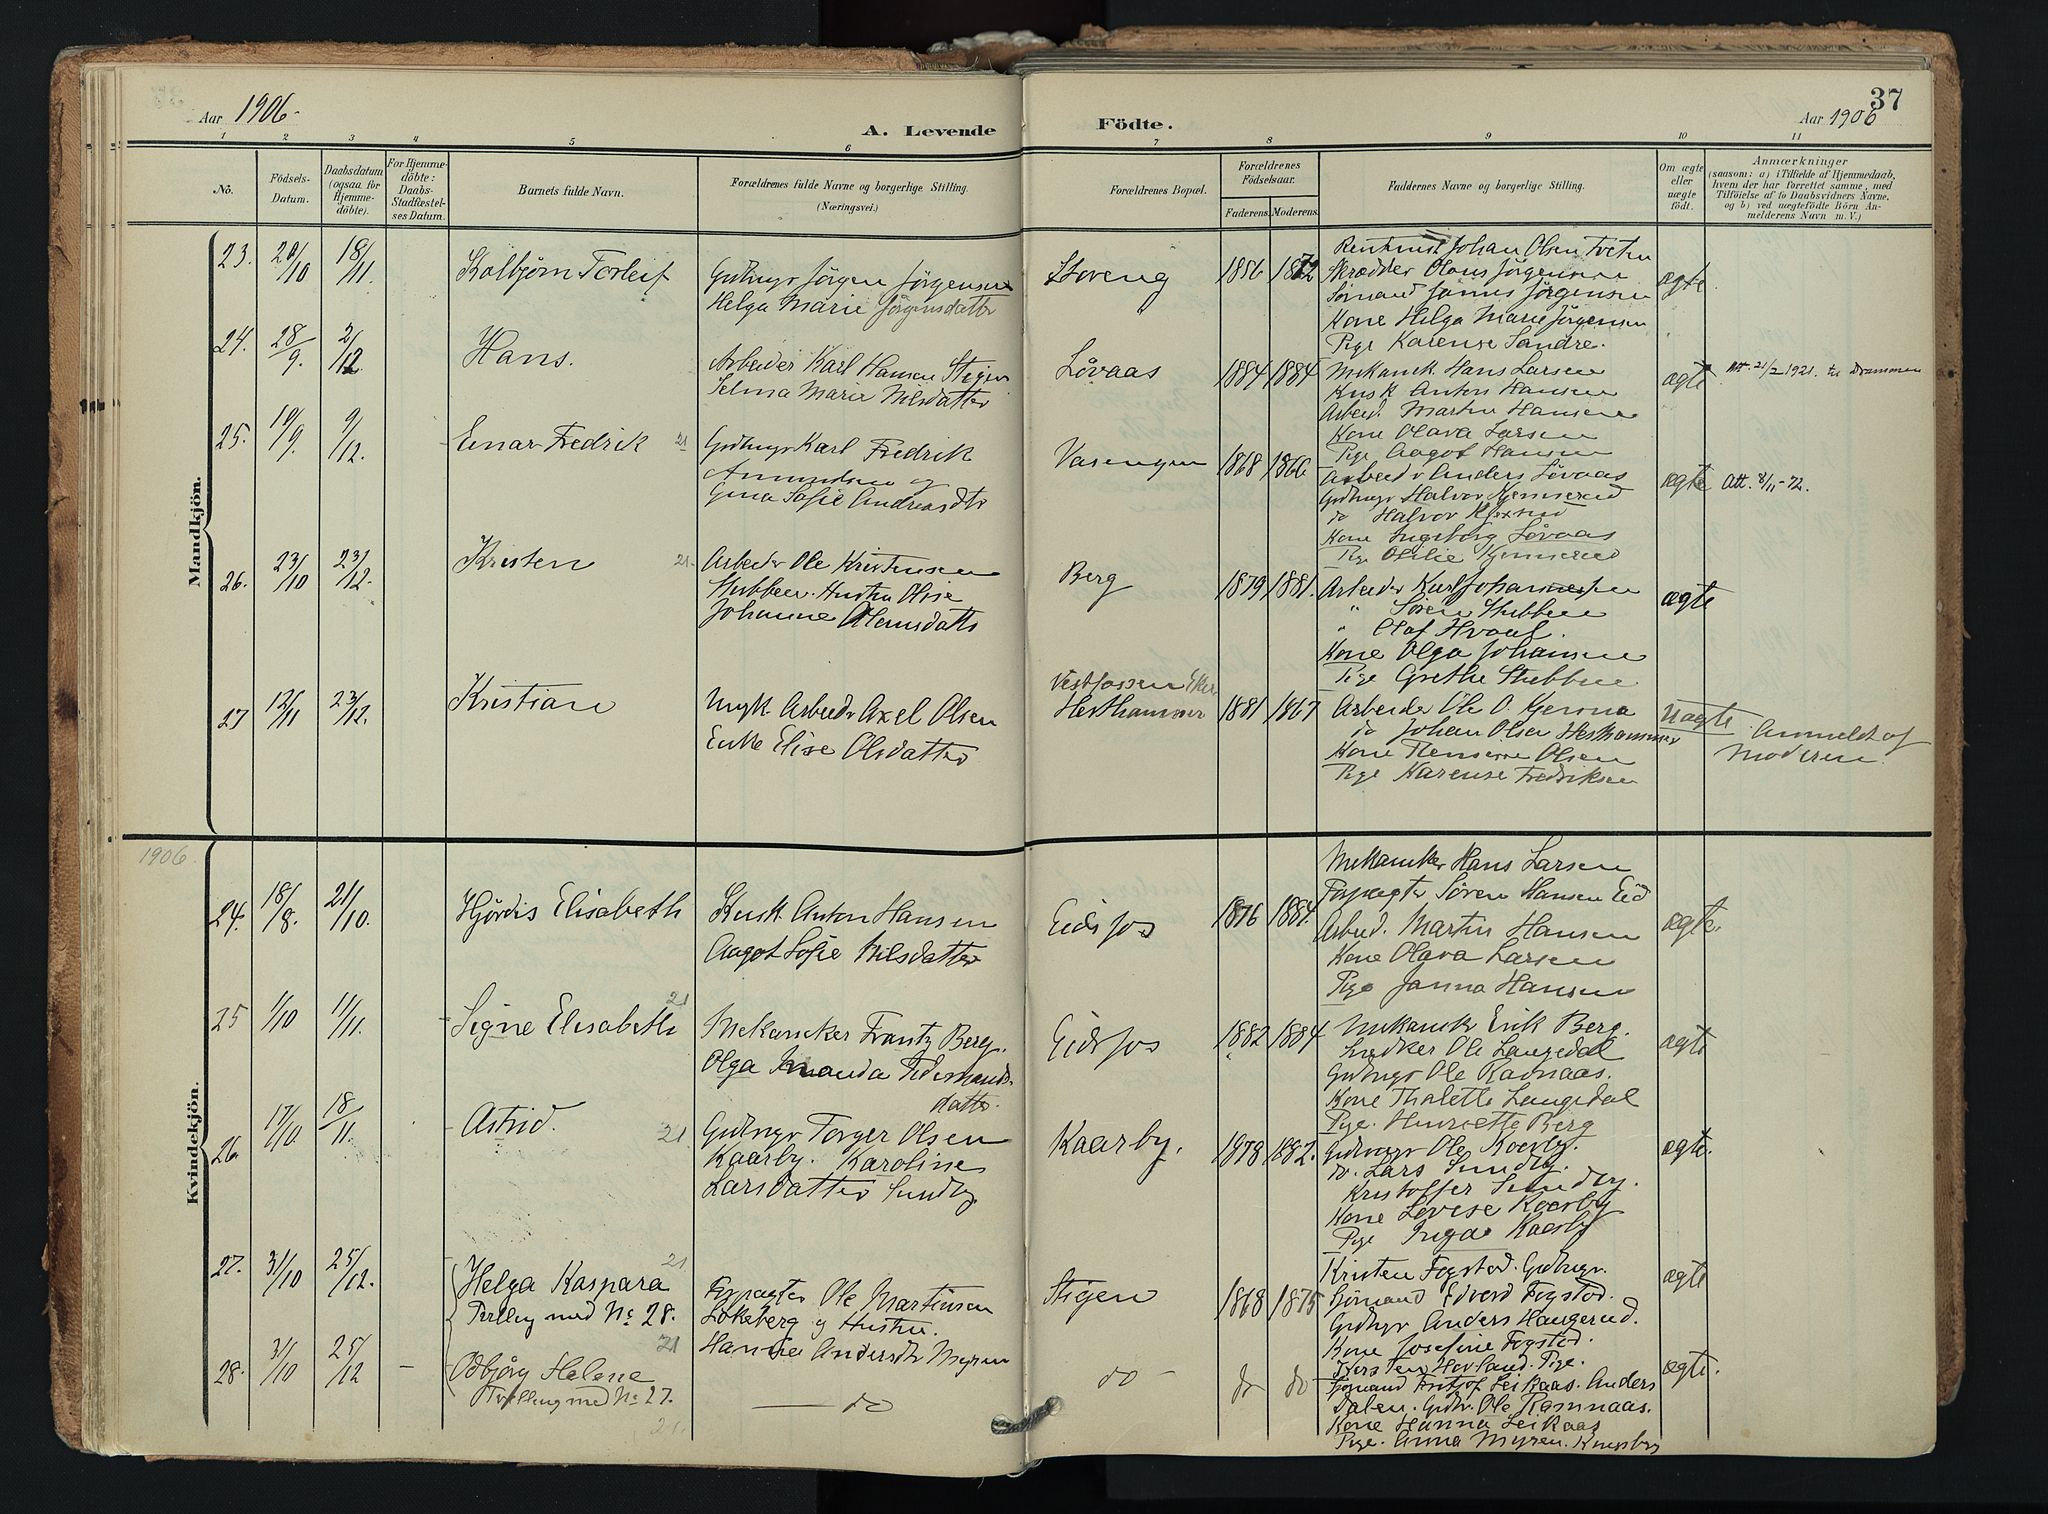 37
Aar 1906.
A. Levende
Födte.
Aar 1906
1 2 3 4 5 6 7 8 9 10 11
No.
Födsels-Datum.
Daabsdatum (ogsaa for Hjemmedöbte).
For Hjemmedöbte: Daabs-Stadfæstelses Datum.
Barnets fulde Navn.
Forældrenes fulde Navne og borgerlige Stilling.
(Næringsvei.)
Forældrenes Bopæl.
Forældrenes Födselsaar.
Faderens. Moderens.
Faddernes Navne og borgerlige Stilling.
Om ægte eller uægte födt.
Anmærkninger
(saasom: a) i Tilfælde af Hjemmedaab, hvem der har forrettet samme, med Tilföielse af to Daabsvidners Navne, og b) ved uægtefödte Börn Anmelderens Navn m. V.)
Mandkjön.
23. 20/10 18/11. Kolbjörn Torleif
Gdbrugr Jörgen Jörgensen
Helga Marie Jörgensdatter
Storeng 1856 1872
Johan Olsen Tveten
Skrædder Olaus Jörgensen
Jörgensen
Kone Helga Marie Jörgensen
Pige Karense Sandre.
ægte
24. 28/9. 2/12 Hans.
Arbeider Karl Hansen Stigen
Selma Marie Nilsdatter
Lövaas 1884 1884
Mekanik Hans Larsen
Kusk Anton Hansen
Arbeid. Martin Hansen
Kone Olava Larsen
Pige Aagot Hansen
ægte Att. 21/2 1921. til Drammen
25. 19/9. 9/12. Einar Fredrik 21
Gdbrugr Karl Fredrik
Amundsen og
Gina Sofie Andreasdtr
Vasengen 1868 1866
Arbeidr Anders Lövaas
Gdbrugr Halvor Hjemmerud
do Halvor
Kone Ingeborg Lövaas
Pige
ægte Att. 8/11-72.
26. 23/10 23/12. Kristen 21.
Arbeider Ole Kristensen
Stubben. Hustru Olise
Johanne Olausdatter
Berg 1879 1881.
Arbeider Karl Johannesen
" Sören Stubben
" Olaf Hvaal.
Kone Olga Johansen
Pige Grethe Stubben
ægte
27 12/11 23/12. Kristian
Ungk. Arbeidr Axel Olsen
Enke Elise Olsdatter
Vestfossen Eker
Hesthammer 1881 1867
Arbeider Ole O.
do Johan Olsen Hesthammer
Kone Olsen
Pige Karense Fredriksen
Uægte. Anmeldt af
Moderen.
1906.
Kvindekjön.
24. 18/8. 21/10. Hjördis Elisabeth
Kusk Anton Hansen
Aagot Sofie Nilsdatter
Eidsfos 1876 1884.
Mekaniker Hans Larsen
Forpagter Sören Hansen Eid
Arbeid. Martin Hansen
Kone Olava Larsen
Pige Janna Hansen
ægte.
25 1/10 11/11. Signe Elisabeth 21
Mekaniker Frantz Berg.
Olga Amanda Tidemands-
datter.
Eidsfos 1882 1884
Mekaniker Erik Berg.
Snedker Ole Langedal
Gdbrugr Ole Ravnaas.
Kone Thalette Langedal
Pige. Henriette Berg
ægte
26. 17/10. 18/11. Astrid. 21.
Gdbrugr Torger Olsen
Kaarby. Karoline
Larsdatter Sundby
Kaarby. 1878 1882.
Gdbrugr Ole Kaarby.
do. Lars Sundby.
Kristoffer Sundby.
Kone Lovise Kaarby
Pige Inga Kaarby
ægte.
27. 31/10 25/12. Helga Kaspara 21
Tvilling med No 28.
Forpagter Ole Martinsen
Lökeberg og Hustru.
Hanna Andersdtr Myren
Stigen 1868 1875
Kristen Fogstad. Gdbrugr.
Edvard Fogstad.
Gdbrugr Anders Haugerud.
Kone Josefine Fogstad.
Kirsten Hovland. Pige.
ægte
28. 31/10 25/12 – Odbjörg Helene 21
Tvilling med No 27.
21.
— do
do do do
Fritjof Leikaas. Anders
Dalen. Gdbr. Ole Ramnaas.
Kone Hanna Leikaas
Pige. Anna Myren.
ægte.